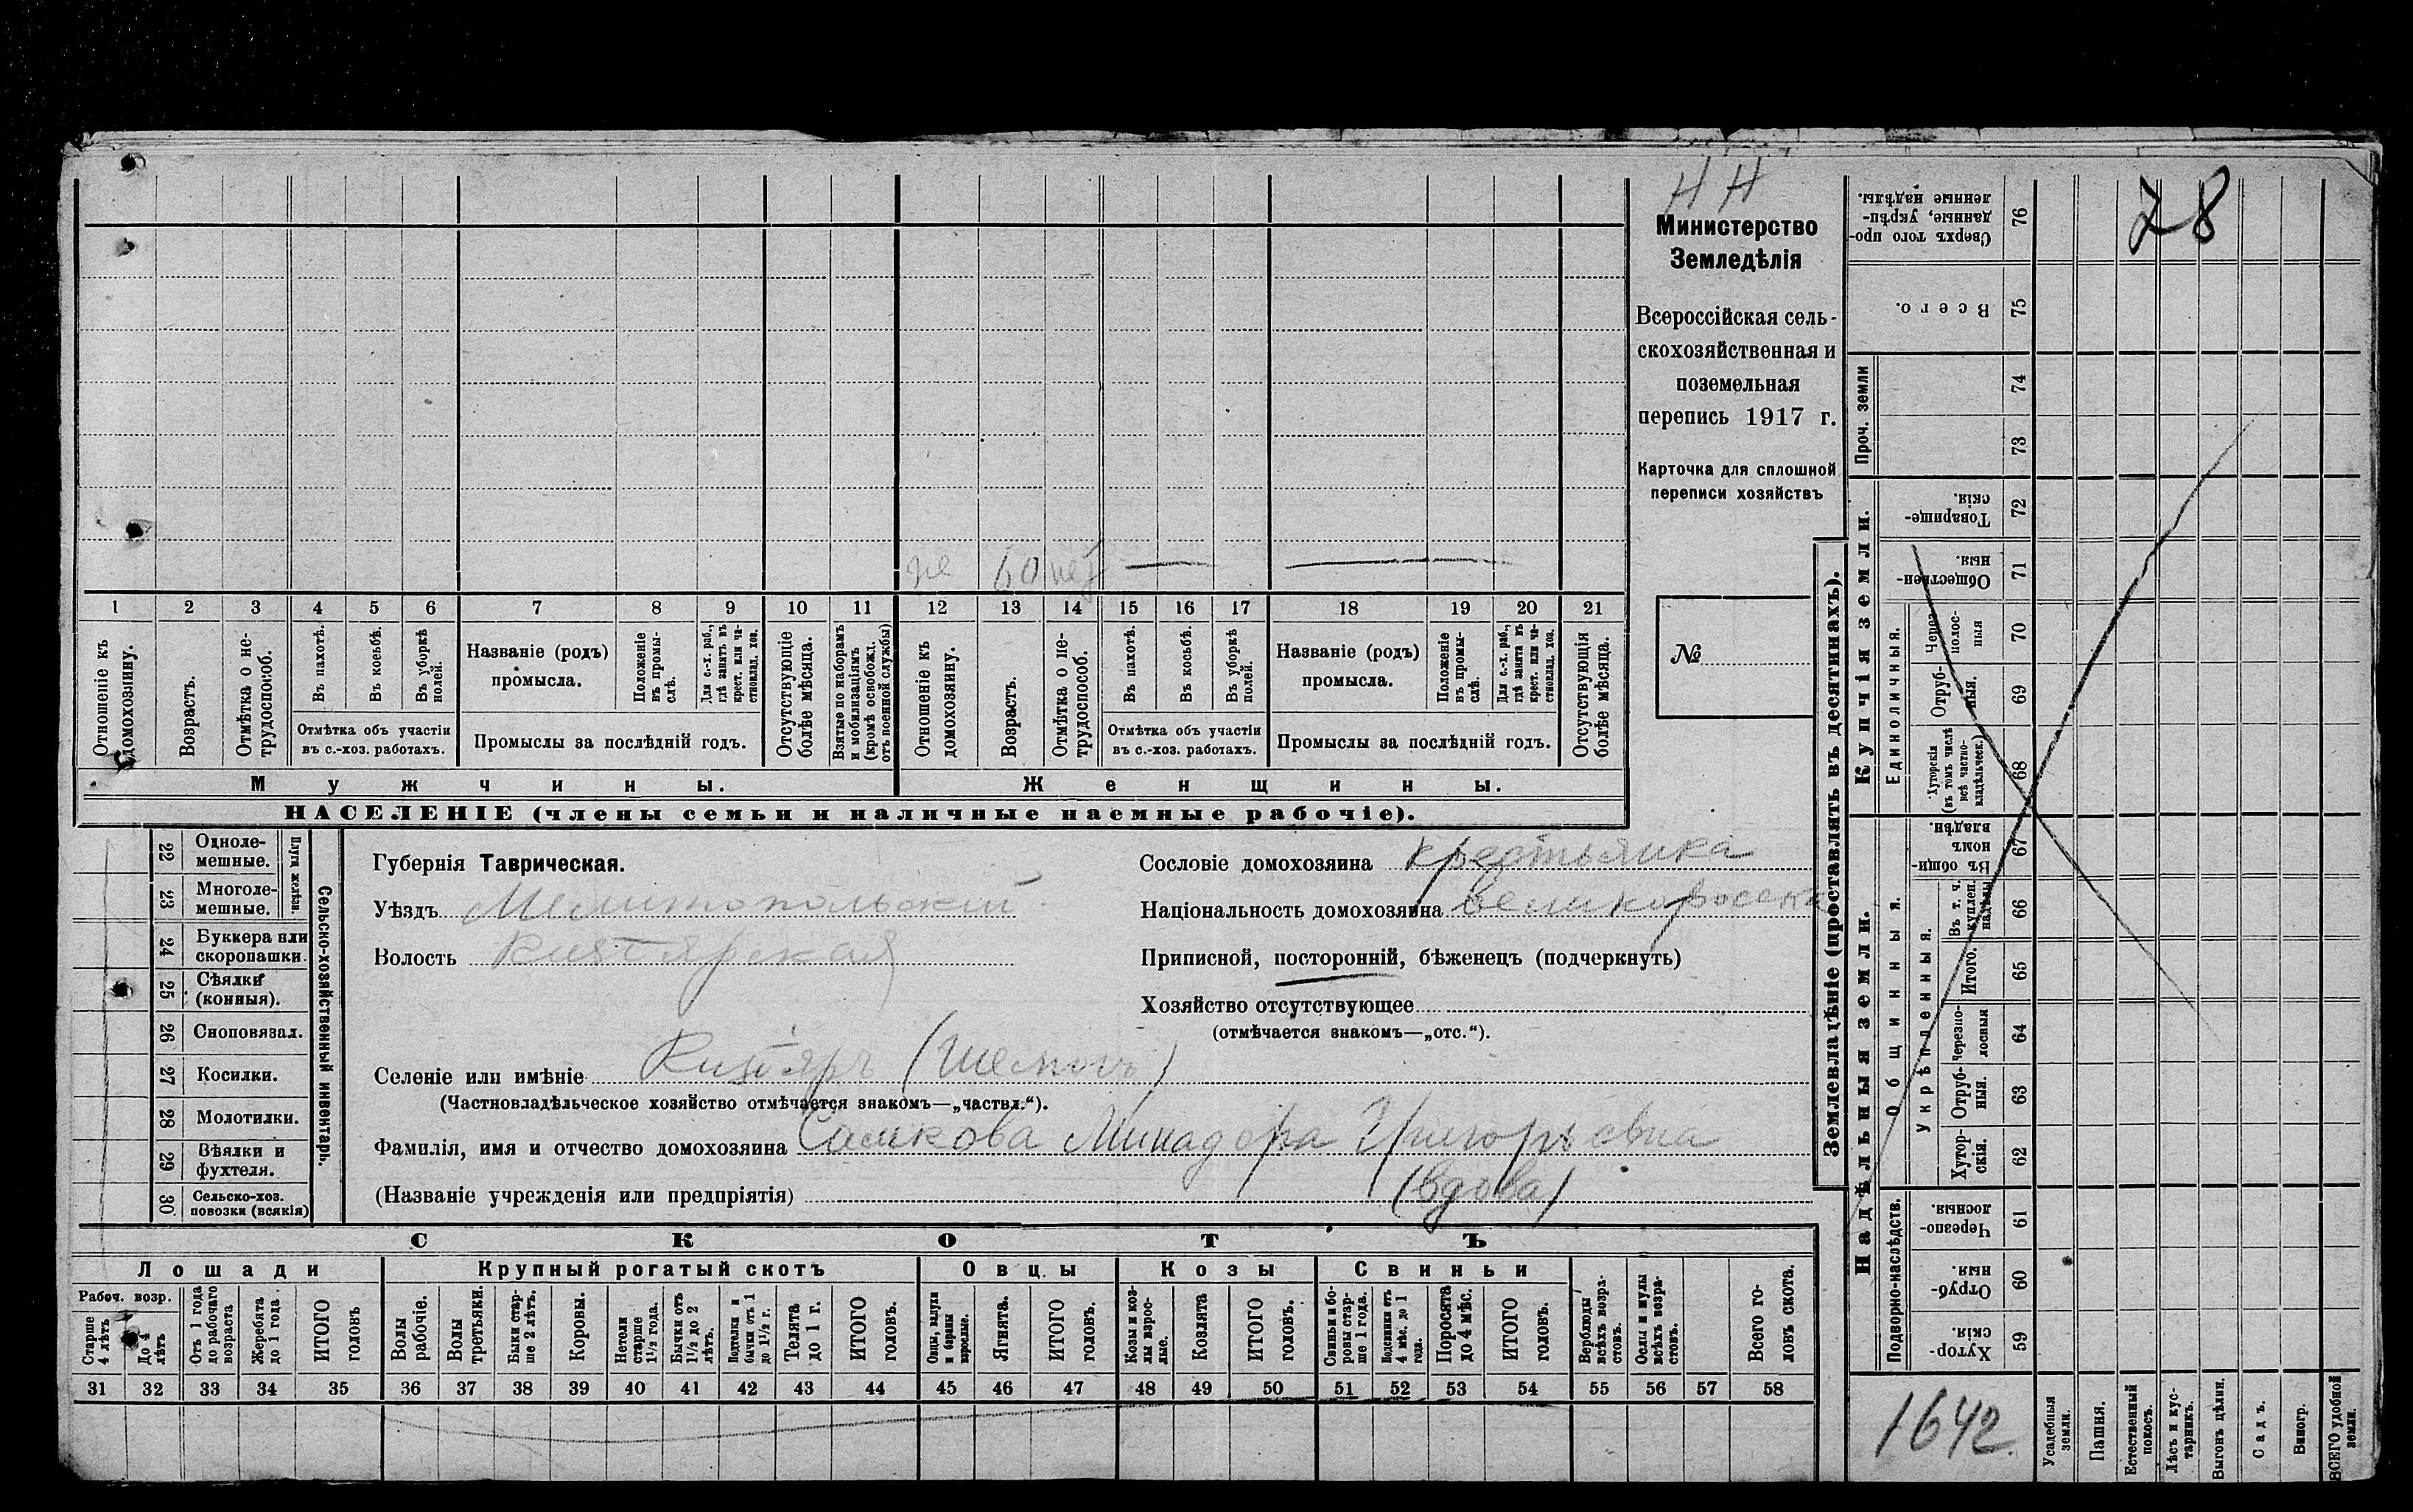 Н Н
Министерство
Земледѣлія
Всероссійская сель-
скохозяйственная и
поземельная
перепись 1917 г.
Карточка для сплошной
переписи хозяйствъ
№
60
1 2 3 4 5 6 7 8 9 10 11 12 13 14 15 16 17 18 19 20 21
Отношеніе къ домохозяину.
Возрастъ.
Отмѣтка о не-трудоспособ.
Въ пахотѣ.
Въ косьбѣ.
Въ уборкѣ полей.
Отмѣтка объ участіи
въ с.-хоз. работахъ.
Названіе (родъ)
промысла.
Положеніе въ промы-слѣ.
Для с.-х. раб., гдѣ занятъ въ крест. или ча-стновлад. хоз.
Промыслы за послѣдній годъ.
Отсутствующіе болѣе мѣсяца.
Взятые по наборамъ и мобилизаціямъ (кромѣ освобожд. отъ военной службы)
Отношеніе къ домохозяину.
Возрастъ.
Отмѣтка о не-трудоспособ.
Въ пахотѣ.
Въ косьбѣ.
Въ уборкѣ полей.
Отмѣтка объ участіи
въ с.-хоз. работахъ.
Названіе (родъ)
промысла.
Положеніе въ промы-слѣ.
Для с.-х. раб., гдѣ занята въ крест. или ча-стновлад. хоз.
Промыслы за послѣдній годъ.
Отсутствующія болѣе мѣсяца.
Мужчины.
Женщины.
НАСЕЛЕНІЕ (члены семьи и наличные наемные рабочіе).
Сельско-хозяйственный инвентарь.
Плуги желѣзн.
22 Одноле-мешные.
23 Многоле-мешные.
24 Буккера или скоропашки.
25 Сѣялки (конныя).
26 Сноповязал.
27 Косилки.
28 Молотилки.
29 Вѣялки и фухтеля.
30 Сельско-хоз. повозки (всякія)
Губернія Таврическая.
Уѣздъ Мелитопольскій
Волость Кизіярская
Селеніе или имѣніе Кизіяръ
(Частновладѣльческое хозяйство отмѣчается знакомъ—„частвл.“).
Фамилія, имя и отчество домохозяина Самкова Минадора Григорьевна
(Названіе учрежденія или предпріятія) (вдова)
Сословіе домохозяина крестьянка
Національность домохозяина великоросска
Приписной, посторонній, бѣженецъ (подчеркнуть)
Хозяйство отсутствующее
(отмѣчается знакомъ—„отс.“).
СКОТЪ
Лошади
Крупный рогатый скотъ
Овцы
Козы
Свиньи
Рабоч. возр.
Старше 4 лѣтъ
До 4 лѣтъ
Отъ 1 года до рабочаго возраста
Жеребята до 1 года.
ИТОГО головъ
Волы рабочіе.
Волы третьяки.
Быки стар-ше 2 лѣтъ.
Коровы.
Нетели старше 1½ года.
Бычки отъ 1½ до 2 лѣтъ.
Подтелки и бычки отъ 1 до 1½ г.
Телята до 1 г.
ИТОГО головъ.
Овцы, валухи и бараны взрослые.
Ягнята.
ИТОГО головъ.
Козы и коз-лы взрос-лые.
Козлята
ИТОГО головъ.
Свиньи и бо-ровы стар-ше 1 года.
Подсвинки отъ 4 мѣс. до 1 года.
Поросята до 4 мѣс.
ИТОГО головъ.
Верблюды всѣхъ возра-стовъ.
Ослы и мулы всѣхъ возра-стовъ.
Всего го-ловъ скота.
31 32 33 34 35 36 37 38 39 40 41 42 43 44 45 46 47 48 49 50 51 52 53 54 55 56 57 58
Землевладѣніе (проставлять въ десятинахъ).
78
Сверхъ того про-данные, укрѣп-ленные надѣлы. 76
Всего. 75
Проч. земли
74
73
Купчія земли.
Товарище-скія. 72
Обществен-ныя. 71
Единоличныя.
Через-полос-ныя 70
Отруб-ныя. 69
Хуторскія (въ томъ числѣ всѣ частно-владѣльческ.) 68
Надѣльныя земли.
Общинныя.
Въ общи-номъ владѣн. 67
Укрѣпленныя.
Въ т. ч. куплен. надѣлы 66
Итого. 65
Черезпо-лосныя 64
Отруб-ныя. 63
Хутор-скія. 62
Подворно-наслѣдств.
Черезпо-лосныя. 61
Отруб-ныя. 60
Хутор-скія 59
1642.
Усадебныя земли.
Пашня.
Естественный покосъ.
Лѣсъ и кус-тарникъ.
Выгонъ цѣлин.
Садъ.
Виногр.
ВСЕГО удобной земли.